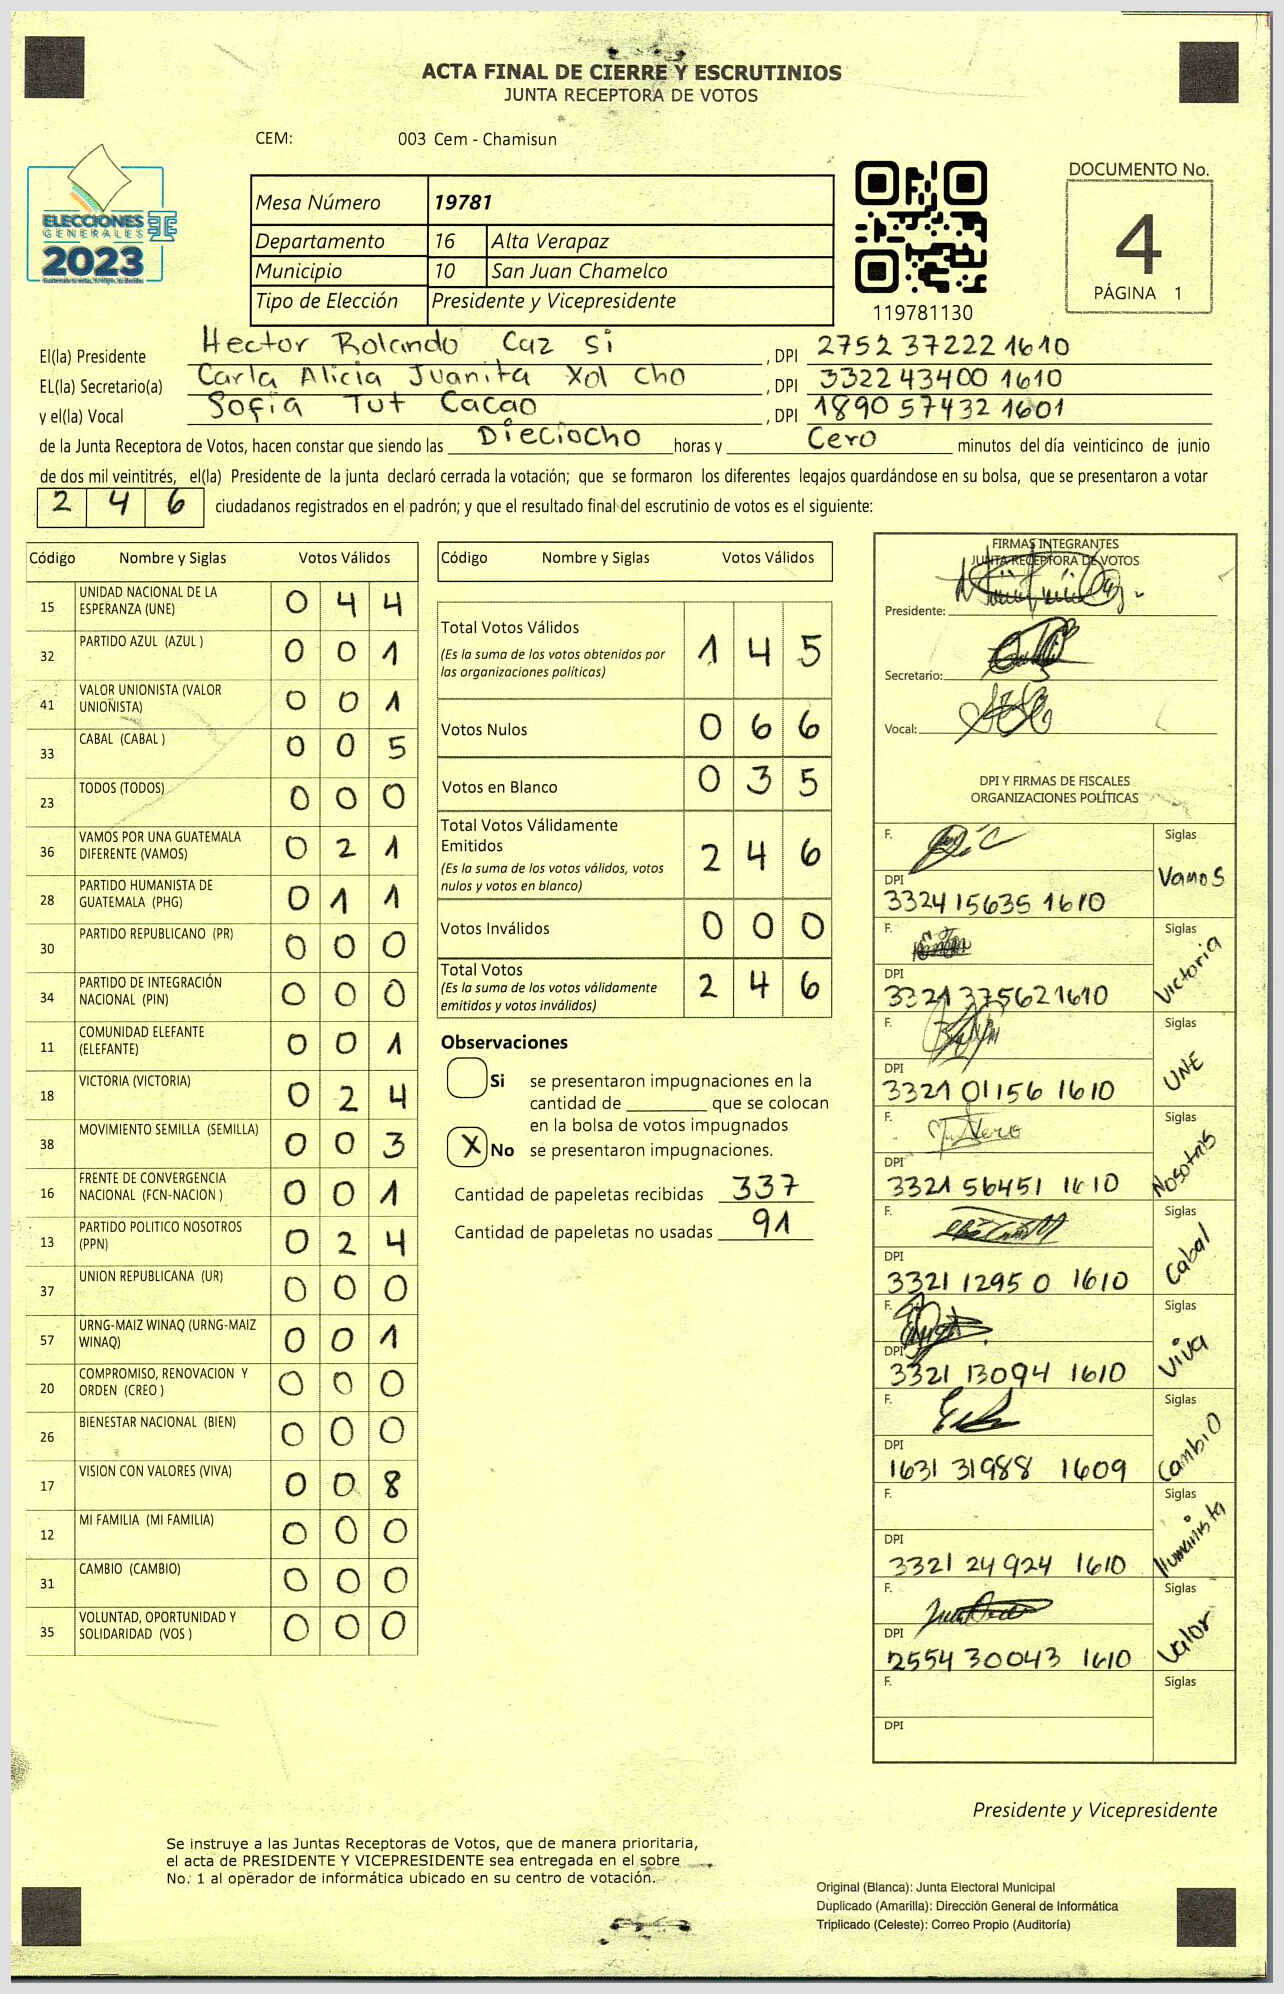 ACTA FINAL DE CIERRE Y ESCRUTINIOS
JUNTA RECEPTORA DE VOTOS
CEM: 003 Cem - Chamisun
ELECCIONES
GENERALES
2023
Mesa Número 19781
Departamento 16 Alta Verapaz
Municipio 10 San Juan Chamelco
Tipo de Elección Presidente y Vicepresidente
119781130
DOCUMENTO No.
4
PÁGINA 1
El(la) Presidente Hector Rolando Caz Si, DPI 2752 37222 1610
EL(la) Secretario(a) Carla Alicia Juanita Xol Cho, DPI 3322 43400 1610
y el(la) Vocal Sofia Tut Cacao, DPI 1890 57432 1601
de la Junta Receptora de Votos, hacen constar que siendo las Dieciocho horas y Cero minutos del día veinticinco de junio
de dos mil veintitrés, el(la) Presidente de la junta declaró cerrada la votación; que se formaron los diferentes legajos guardándose en su bolsa, que se presentaron a votar
2 4 6 ciudadanos registrados en el padrón; y que el resultado final del escrutinio de votos es el siguiente:
Código Nombre y Siglas Votos Válidos
15 UNIDAD NACIONAL DE LA ESPERANZA (UNE) 0 4 4
32 PARTIDO AZUL (AZUL ) 0 0 1
41 VALOR UNIONISTA (VALOR UNIONISTA) 0 0 1
33 CABAL (CABAL ) 0 0 5
23 TODOS (TODOS) 0 0 0
36 VAMOS POR UNA GUATEMALA DIFERENTE (VAMOS) 0 2 1
28 PARTIDO HUMANISTA DE GUATEMALA (PHG) 0 1 1
30 PARTIDO REPUBLICANO (PR) 0 0 0
34 PARTIDO DE INTEGRACIÓN NACIONAL (PIN) 0 0 0
11 COMUNIDAD ELEFANTE (ELEFANTE) 0 0 1
18 VICTORIA (VICTORIA) 0 2 4
38 MOVIMIENTO SEMILLA (SEMILLA) 0 0 3
16 FRENTE DE CONVERGENCIA NACIONAL (FCN-NACION ) 0 0 1
13 PARTIDO POLITICO NOSOTROS (PPN) 0 2 4
37 UNION REPUBLICANA (UR) 0 0 0
57 URNG-MAIZ WINAQ (URNG-MAIZ WINAQ) 0 0 1
20 COMPROMISO, RENOVACION Y ORDEN (CREO ) 0 0 0
26 BIENESTAR NACIONAL (BIEN) 0 0 0
17 VISION CON VALORES (VIVA) 0 0 8
12 MI FAMILIA (MI FAMILIA) 0 0 0
31 CAMBIO (CAMBIO) 0 0 0
35 VOLUNTAD, OPORTUNIDAD Y SOLIDARIDAD (VOS ) 0 0 0
Código Nombre y Siglas Votos Válidos
Total Votos Válidos 1 4 5
(Es la suma de los votos obtenidos por
las organizaciones políticas)
Votos Nulos 0 6 6
Votos en Blanco 0 3 5
Total Votos Válidamente
Emitidos 2 4 6
(Es la suma de los votos válidos, votos
nulos y votos en blanco)
Votos Inválidos 0 0 0
Total Votos 2 4 6
(Es la suma de los votos válidamente
emitidos y votos inválidos)
Observaciones
Si se presentaron impugnaciones en la
cantidad de ________ que se colocan
en la bolsa de votos impugnados
X No se presentaron impugnaciones.
Cantidad de papeletas recibidas 337
Cantidad de papeletas no usadas 91
FIRMAS INTEGRANTES
JUNTA RECEPTORA DE VOTOS
Presidente:
Secretario:
Vocal:
DPI Y FIRMAS DE FISCALES
ORGANIZACIONES POLÍTICAS
F. Siglas
DPI Vamos
3324 15635 1610
F. Siglas
DPI Victoria
3321 37562 1610
F. Siglas
DPI UNE
3321 01156 1610
F. Siglas
DPI Nosotros
3321 56451 1610
F. Siglas
DPI Cabal
3321 12950 1610
F. Siglas
DPI Viva
3321 13094 1610
F. Siglas
DPI Cambio
1631 31988 1609
F. Siglas
DPI Humanista
3321 24924 1610
F. Siglas
DPI Valor
2554 30043 1610
F. Siglas
DPI
Presidente y Vicepresidente
Se instruye a las Juntas Receptoras de Votos, que de manera prioritaria,
el acta de PRESIDENTE Y VICEPRESIDENTE sea entregada en el sobre
No. 1 al operador de informática ubicado en su centro de votación.
Original (Blanca): Junta Electoral Municipal
Duplicado (Amarilla): Dirección General de Informática
Triplicado (Celeste): Correo Propio (Auditoría)